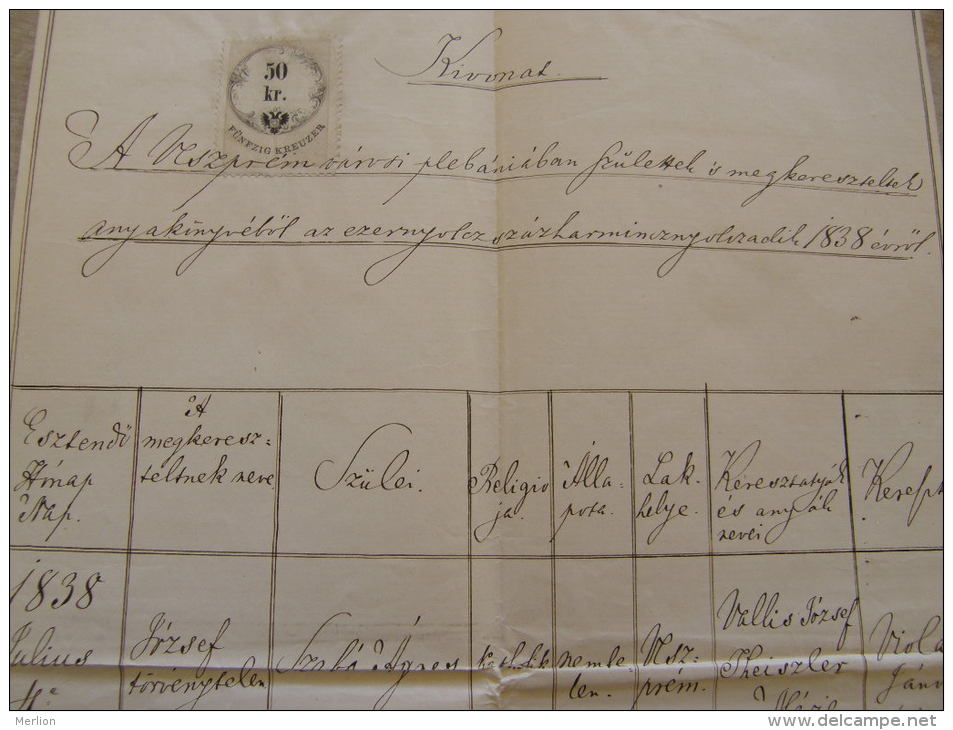 50
kr.
FÜNFZIG KREUZER
Kivonat.
A Veszprém városi plebániában születtek és megkereszteltek
anyakönyvéből az ezernyolcz százharmincznyolczadik 1838 évről.
Esztendő
Hónap
Nap.
A
megkeresz=
teltnek neve
Szülei.
Religio
ja.
Álla=
pota.
Lak=
helye.
Keresztatyák
és anyák
nevei
Kereszt
1838
Julius
József
törvénytelen
Szabó Ágnes
katholik
nemte=
len.
Vesz=
prém.
Vallis József
Theiszler
Viola
Merlion
www.delcampe.net